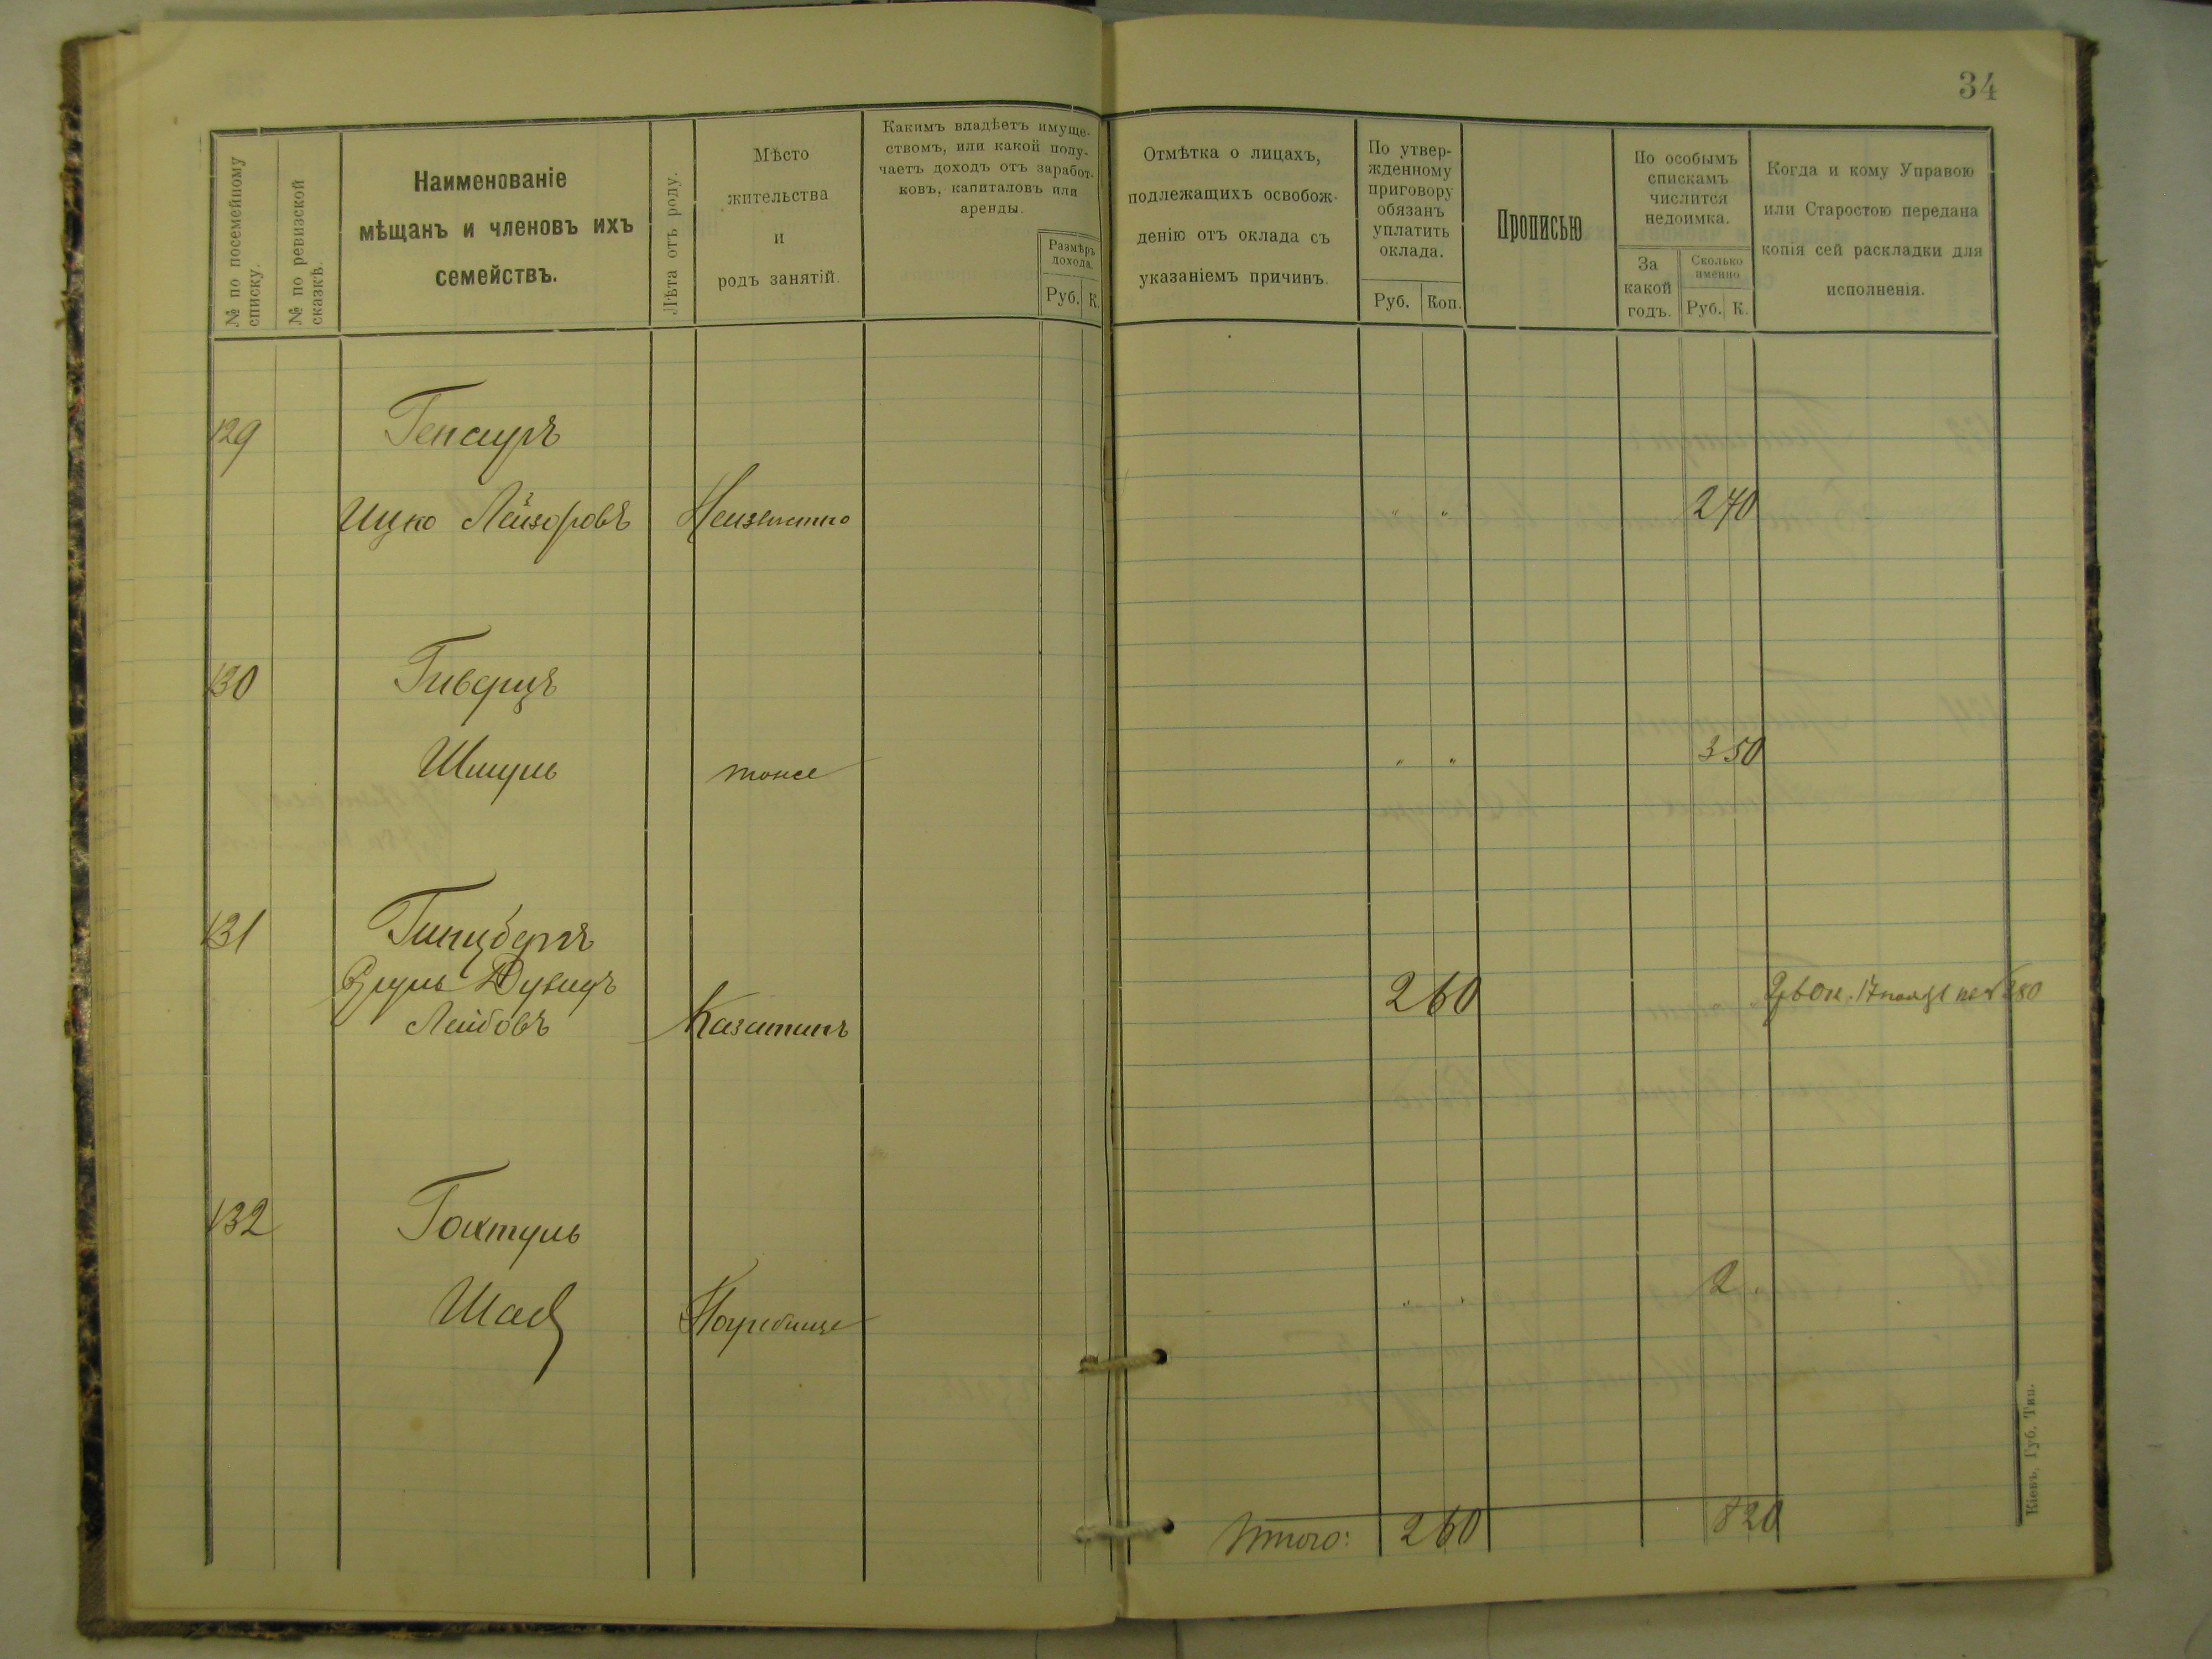 34
№ по посемейному списку.
№ по ревизской сказкѣ.
Наименованіе
мѣщанъ и членовъ ихъ
семействъ.
Лѣта отъ роду.
Мѣсто
жительства
и
родъ занятій.
Какимъ владѣетъ имуще-
ствомъ, или какой полу-
чаетъ доходъ отъ заработ-
ковъ, капиталовъ или
аренды.
Размѣръ
дохода.
Руб. К.
Отмѣтка о лицахъ,
подлежащихъ освобож-
денію отъ оклада съ
указаніемъ причинъ.
По утвер-
жденному
приговору
обязанъ
уплатить
оклада.
Руб. Коп.
Прописью
По особымъ
спискамъ
числится
недоимка.
За
какой
годъ.
Сколько
именно
Руб. К.
Когда и кому Управою
или Старостою передана
копія сей раскладки для
исполненія.
129
Ицко Лейзоровъ Неизвѣстно " " 2 70
130 Гиверцъ
Шмуль тоже " " 3 50
131 Гинцбергъ
Сруль Дувидъ 2 60
Лейбовъ Казатинъ
132 Гоктуль
2 "
Погребище " "
Итого: 2 60 8 20
Кіевъ, Губ. Тип.